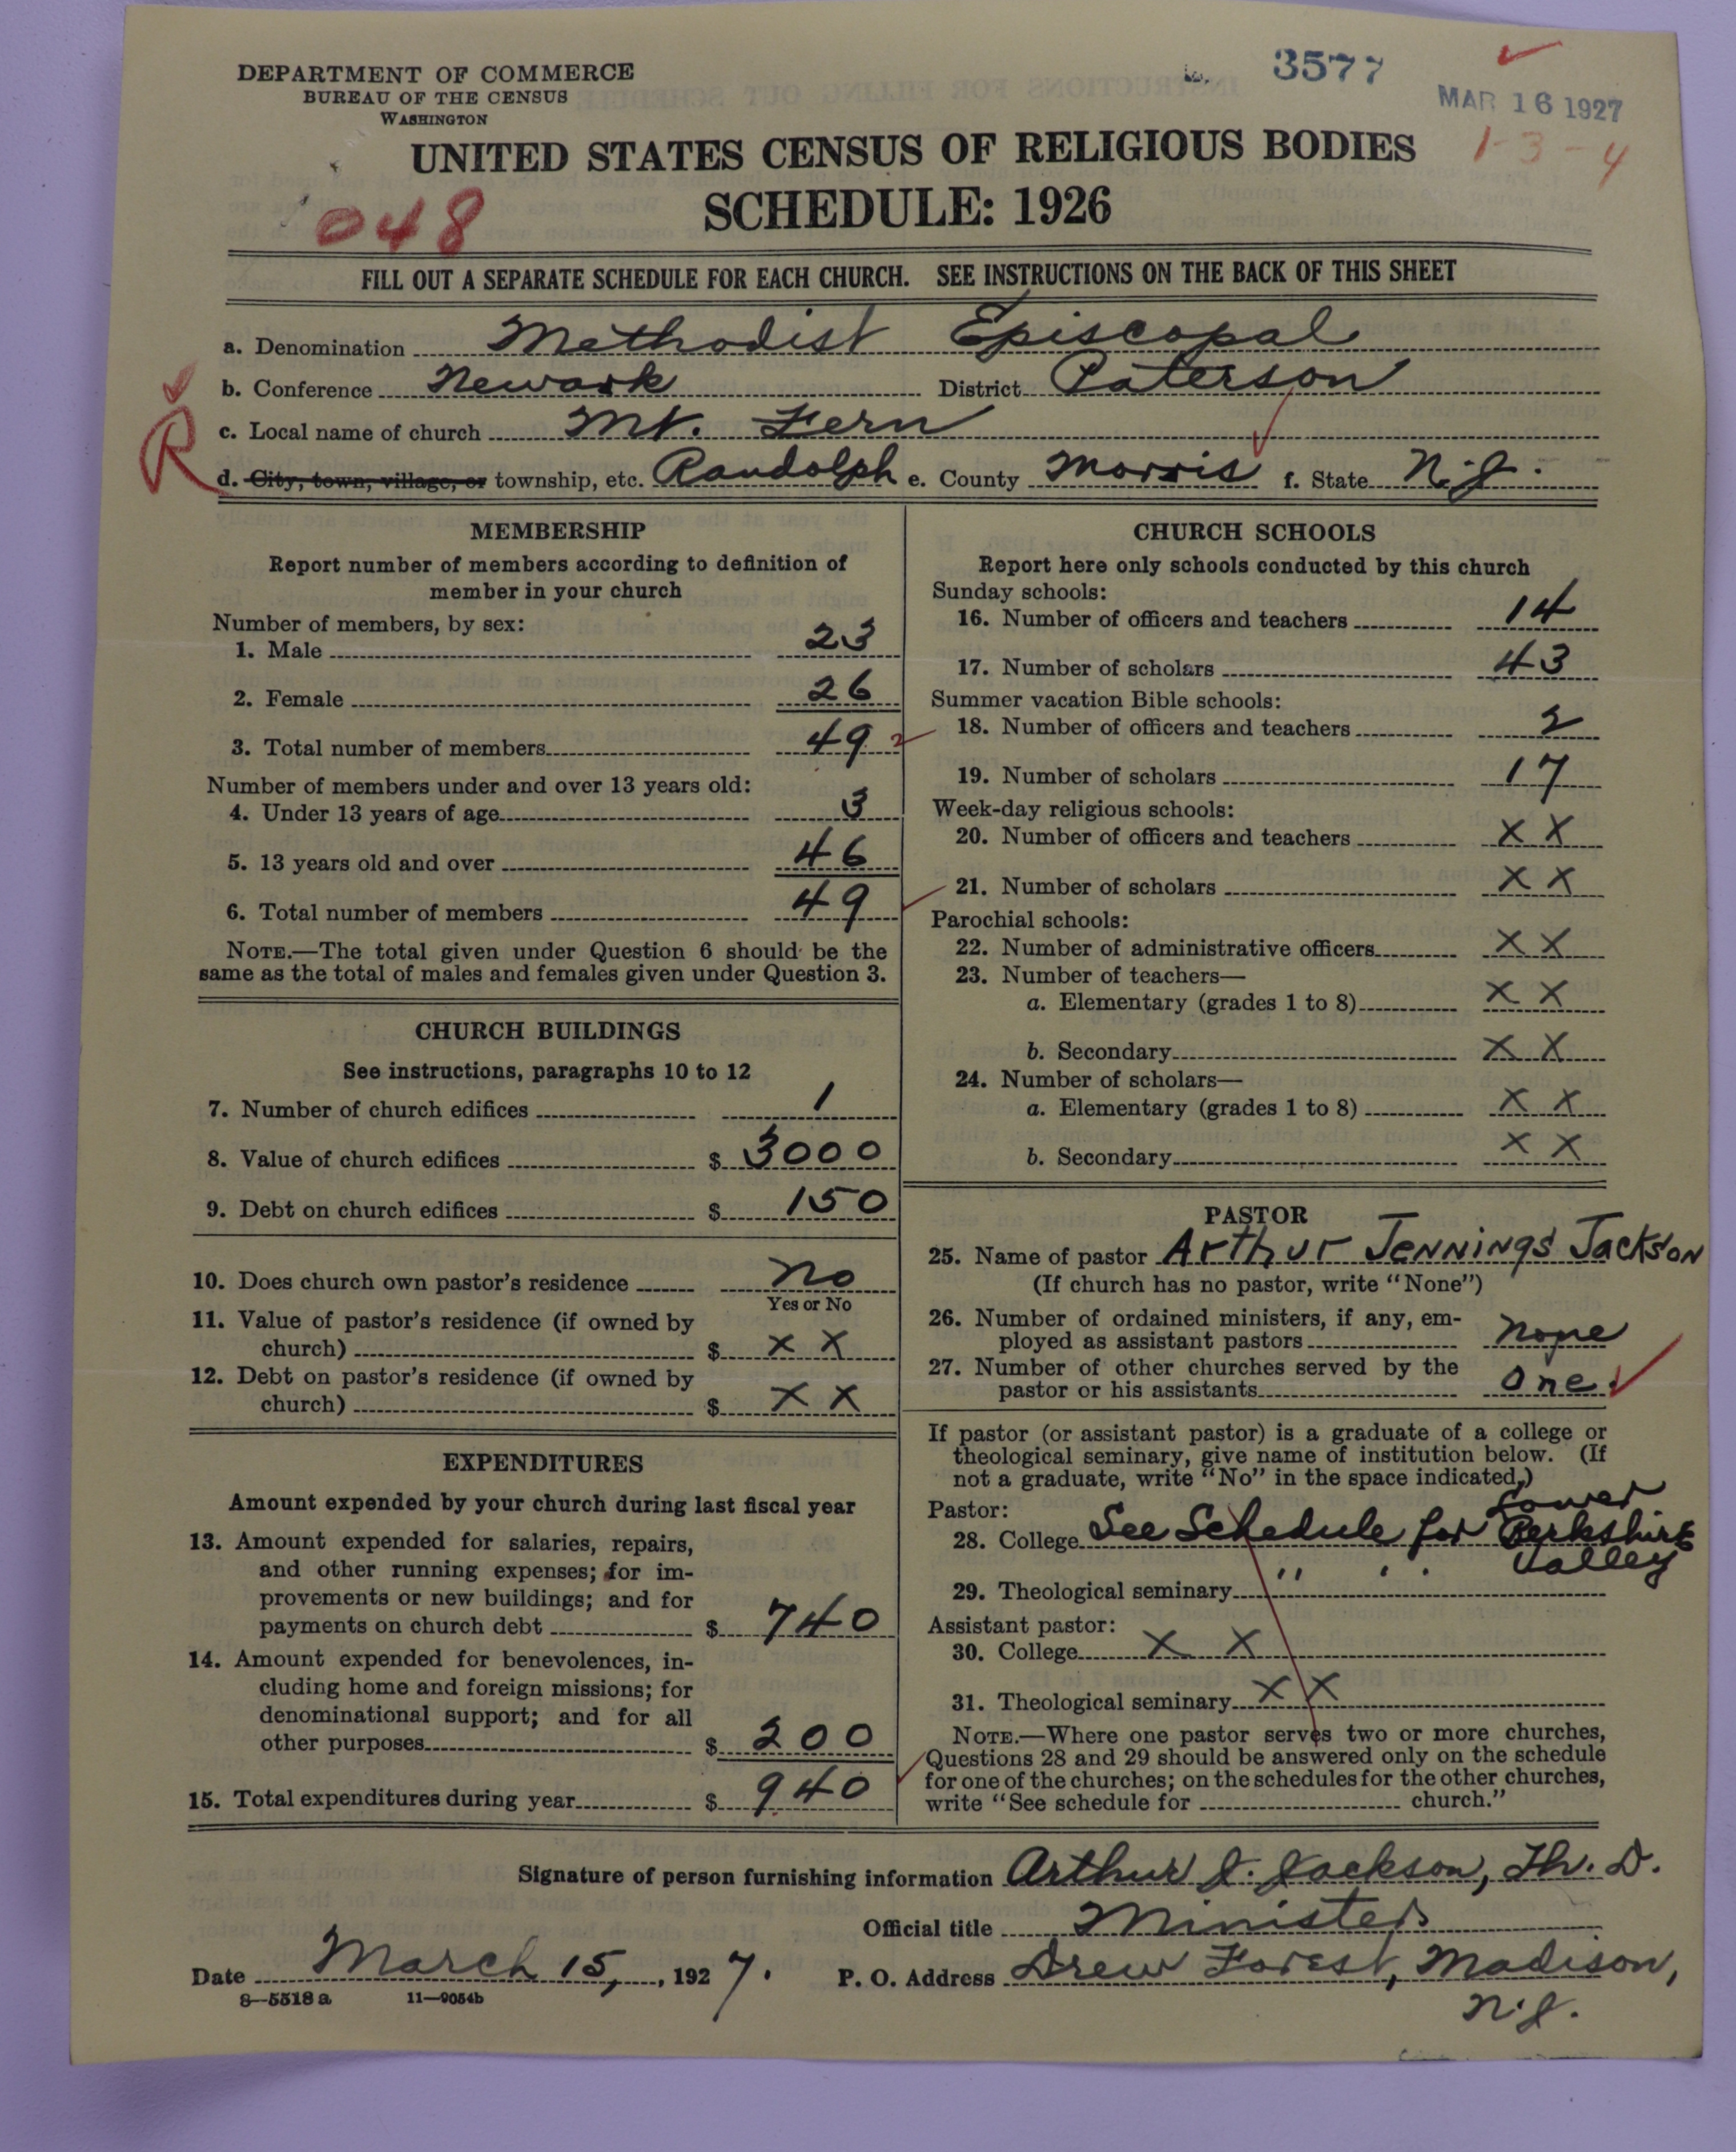 DEPARTMENT OF COMMERCE
BUREAU OF THE CENSUS
WASHINGTON
3577
MAR 16 1927
1-3-4
UNITED STATES CENSUS OF RELIGIOUS BODIES
SCHEDULE: 1926
048
FILL OUT A SEPARATE SCHEDULE FOR EACH CHURCH. SEE INSTRUCTIONS ON THE BACK OF THIS SHEET
a. Denomination Methodist Episcopal
b. Conference Newark District Paterson
R
c. Local name of church Mt. Fern
d. City, town, village, or township, etc. Randolph e. County Morris f. State N.J.
MEMBERSHIP
Report number of members according to definition of
member in your church
Number of members, by sex:
1. Male 23
2. Female 26
3. Total number of members 49
Number of members under and over 13 years old:
4. Under 13 years of age 3
5. 13 years old and over 46
6. Total number of members 49
NOTE.—The total given under Question 6 should be the
same as the total of males and females given under Question 3.
CHURCH BUILDINGS
See instructions, paragraphs 10 to 12
7. Number of church edifices 1
8. Value of church edifices $ 3000
9. Debt on church edifices $ 150
10. Does church own pastor's residence No
Yes or No
11. Value of pastor's residence (if owned by
church) $ X X
12. Debt on pastor's residence (if owned by
church) $ X X
EXPENDITURES
Amount expended by your church during last fiscal year
13. Amount expended for salaries, repairs,
and other running expenses; for im-
provements or new buildings; and for
payments on church debt $ 740
14. Amount expended for benevolences, in-
cluding home and foreign missions; for
denominational support; and for all
other purposes $ 200
15. Total expenditures during year $ 940
CHURCH SCHOOLS
Report here only schools conducted by this church
Sunday schools:
16. Number of officers and teachers 14
17. Number of scholars 43
Summer vacation Bible schools:
18. Number of officers and teachers 2
19. Number of scholars 17
Week-day religious schools:
20. Number of officers and teachers X X
21. Number of scholars X X
Parochial schools:
22. Number of administrative officers X X
23. Number of teachers—
a. Elementary (grades 1 to 8) X X
b. Secondary X X
24. Number of scholars—
a. Elementary (grades 1 to 8) X X
b. Secondary X X
PASTOR
25. Name of pastor Arthur Jennings Jackson
(If church has no pastor, write "None")
26. Number of ordained ministers, if any, em-
ployed as assistant pastors None
27. Number of other churches served by the
pastor or his assistants One
If pastor (or assistant pastor) is a graduate of a college or
theological seminary, give name of institution below. (If
not a graduate, write "No" in the space indicated.)
Pastor:
28. College See Schedule for Lower Berkshire Valley
29. Theological seminary " " "
Assistant pastor:
30. College X X
31. Theological seminary X X
NOTE.—Where one pastor serves two or more churches,
Questions 28 and 29 should be answered only on the schedule
for one of the churches; on the schedules for the other churches,
write "See schedule for church."
Signature of person furnishing information Arthur J. Jackson, Th. D.
Official title Minister
Date March 15, 1927. P. O. Address Drew Forest, Madison,
N.J.
8-5518 a 11—9054b